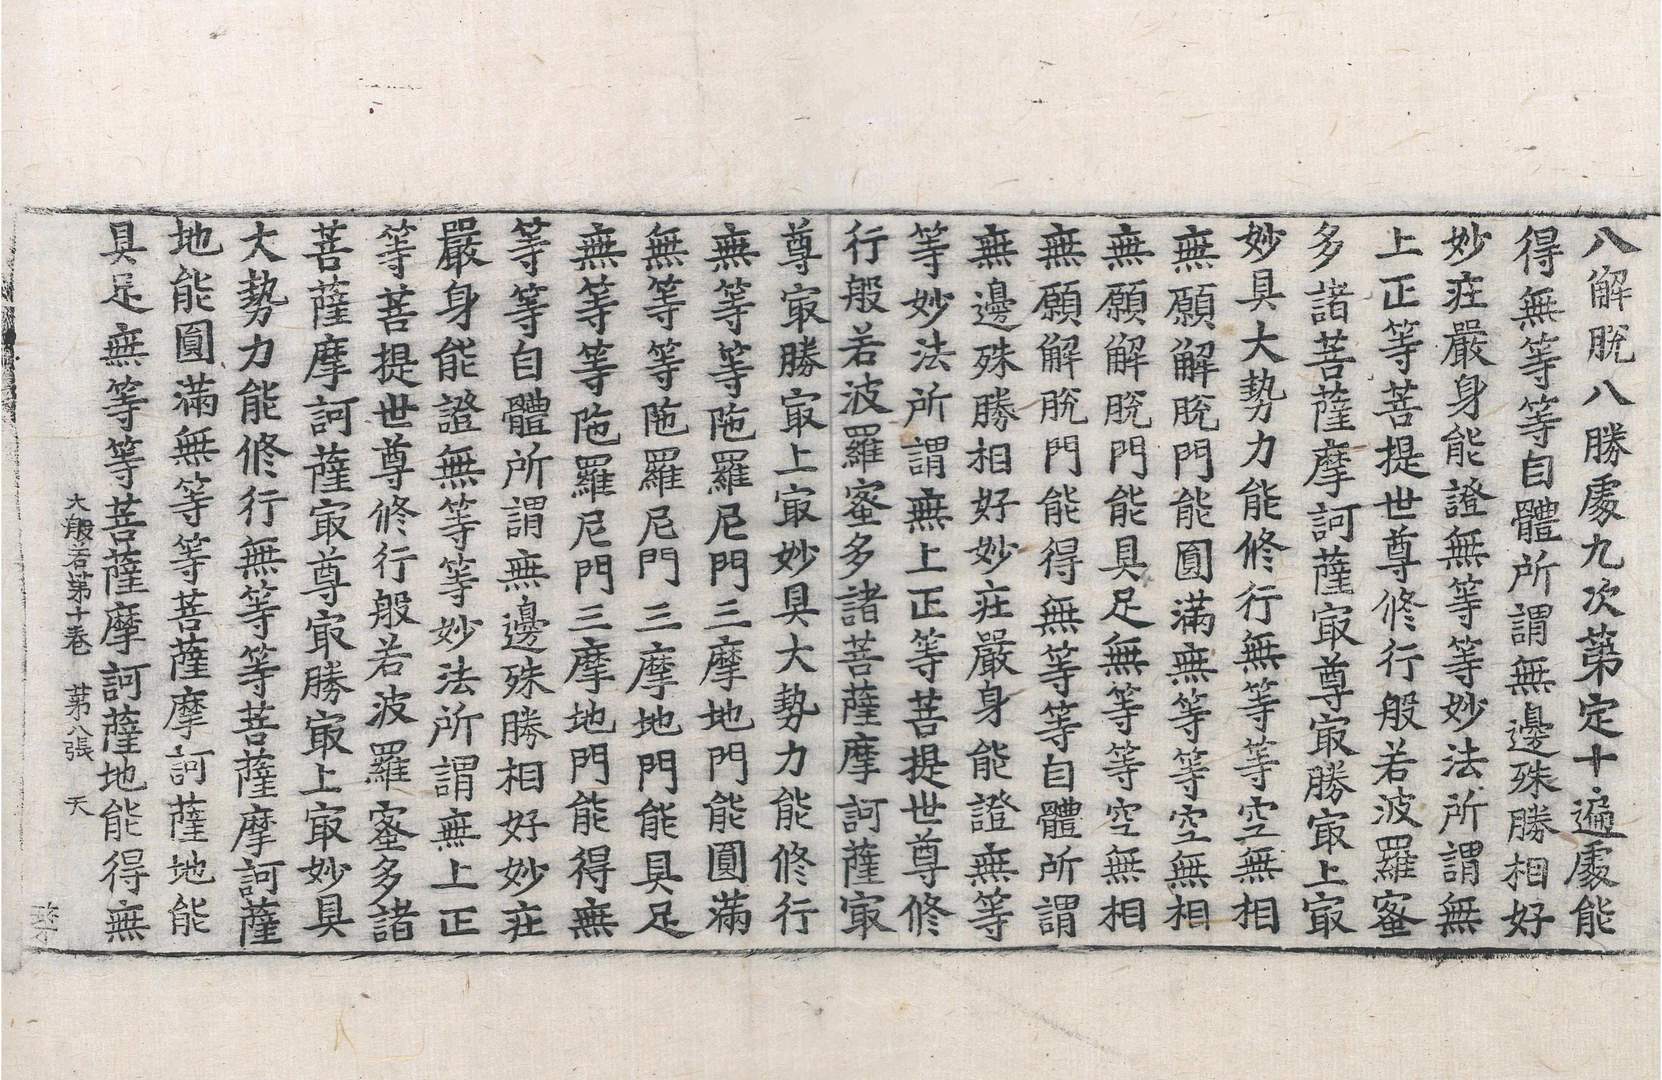 八解脫八勝處九次第定十遍處能
得無等等自體所謂無邊殊勝相好
妙莊嚴身能證無等等妙法所謂無
上正等菩提世尊修行般若波羅蜜
多諸菩薩摩訶薩㝡尊㝡勝㝡上㝡
妙具大勢力能修行無等等空無相
無願解脫門能圓滿無等等空無相
無願解脫門能具足無等等空無相
無願解脫門能得無等等自體所謂
無邊殊勝相好妙莊嚴身能證無等
等妙法所謂無上正等菩提世尊修
行般若波羅蜜多諸菩薩摩訶薩㝡
尊㝡勝㝡上㝡妙具大勢力能修行
無等等陁羅尼門三摩地門能圓滿
無等等陁羅尼門三摩地門能具足
無等等陁羅尼門三摩地門能得無
等等自體所謂無邊殊勝相好妙莊
嚴身能證無等等妙法所謂無上正
等菩提世尊修行般若波羅蜜多諸
菩薩摩訶薩㝡尊㝡勝㝡上㝡妙具
大勢力能修行無等等菩薩摩訶薩
地能圓滿無等等菩薩摩訶薩地能
具足無等等菩薩摩訶薩地能得無
大般若第十卷 第八張 天